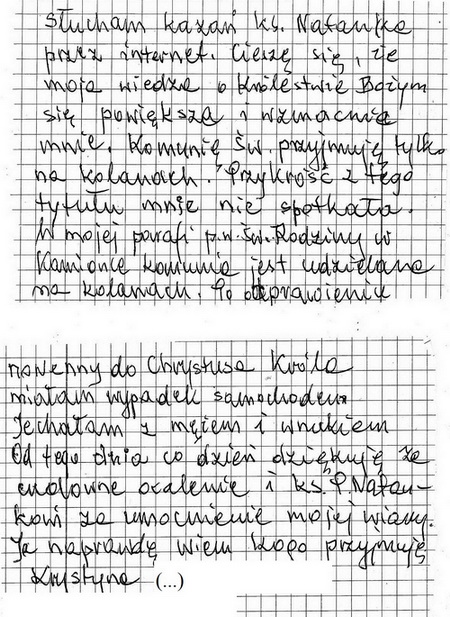 Słucham kazań ks. Natanka
przez internet. Cieszę się, że
moja wiedza o Królestwie Bożym
się powiększa i wzmacnia
mnie. Komunię Św. przyjmuję tylko
na kolanach. Przykrość z tego
tytułu mnie nie spotkała.
W mojej parafi p.w. Św. Rodziny w
Kamionce komunia jest udzielana
na kolanach. Po odprawieniu
nowenny do Chrystusa Króla
miałam wypadek samochodem
Jechałam z mężem i wnukiem
Od tego dnia co dzień dziękuję za
cudowne ocalenie i ks. P. Natan-
kowi za umocnienie mojej wiary.
Ja naprawdę wiem kogo przyjmuję
Krystyna (...)